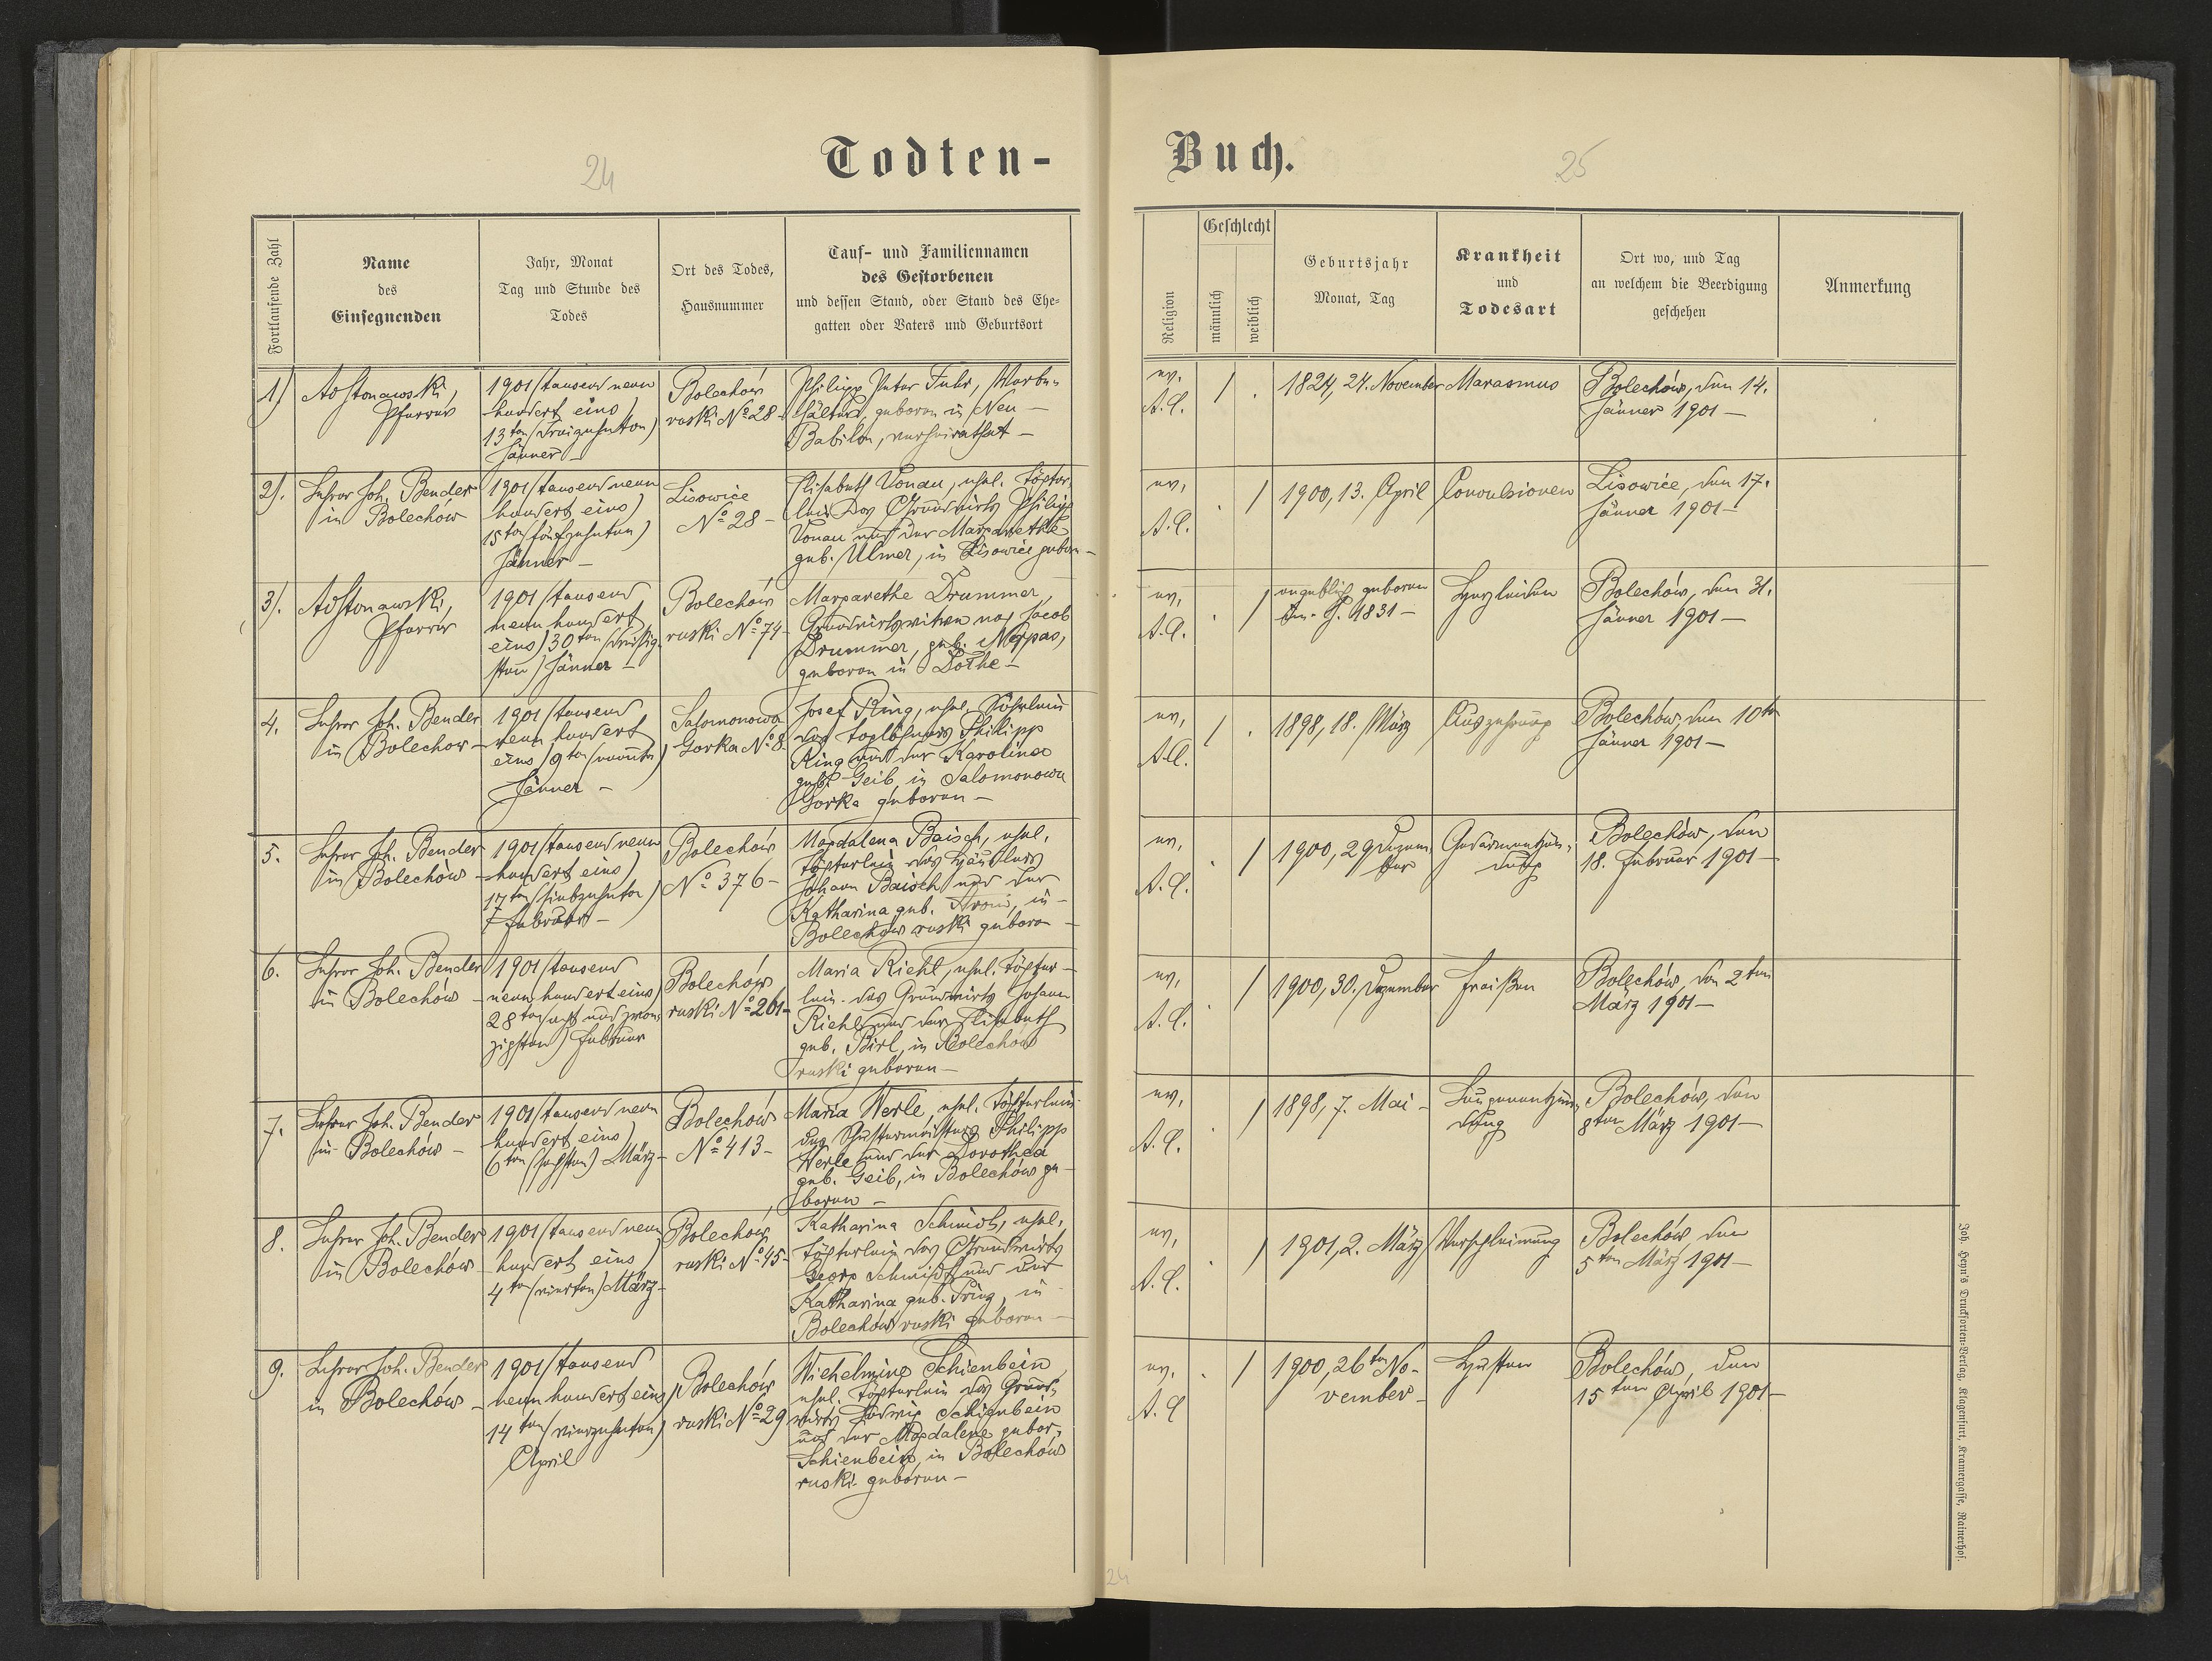 24
Todten-
Fortlaufende Zahl
Name
des
Einsegnenden
Jahr, Monat
Tag und Stunde des
Todes
Ort des Todes,
Hausnummer
Tauf- und Familiennamen
des Gestorbenen
und dessen Stand, oder Stand des Ehe-
gatten oder Vaters und Geburtsort
1)
Pfarrer
1901 (tausend neun
hundert eins)
13ten (dreizehnten)
Jänner –
Bolechów
ruski No 28 –
Philipp Peter Fuhr,
geboren in Neu –
Babilon, verheirathet –
2).
Lehrer Joh. Bender
in Bolechów
1901 (tausend neun
hundert eins)
15ten (fünfzehnten)
Jänner –
Lisowice
No 28 –
Elisabeth Vonau, ehel. Töchter-
lein des Grundwirts Philipp
Vonau und der Margarethe
geb. Ulmer, in Lisowice geboren –
3).
Pfarrer
1901 (tausend
neun hundert
eins) 30ten (dreißig-
sten) Jänner –
Bolechów
ruski No 74 –
Margarethe Drummer,
Grundwirtswitwe nach Jacob
Drummer, geb.
geboren in
4.
Lehrer Joh. Bender
in Bolechow –
1901 (tausend
neun hundert
eins) 9ten (neunten)
Jänner –
Salomonowa
Gorka No 8.
Josef Ring, ehel. Söhnlein
des Taglöhners Philipp
Ring und der Karolina
geb. Geib, in Salomonowa
Gorka geboren –
5.
Lehrer Joh. Bender
in Bolechów –
1901 (tausend neun
hundert eins)
17ten (siebzehnten)
Februar –
Bolechów
No 376 –
Magdalena Baisch, ehel.
Töchterlein des Häuslers
Johann Baisch und der
Katharina geb. in –
Bolechów ruski geboren –
6.
Lehrer Joh. Bender
in Bolechów –
1901 (tausend
neun hundert eins)
28ten (acht und zwan-
zigsten) Februar
Bolechów
ruski No 261 –
Maria Riehl, ehel. Töchter –
lein des Grundwirts Johann
Riehl und der Elisabeth
geb. Birl, in Bolechów
ruski geboren –
7.
Lehrer Joh. Bender
in Bolechów –
1901 (tausend neun
hundert eins)
6ten (sechsten) März –
Bolechów
No 413 –
Maria Werle, ehel. Töchterlein
des Schustermeisters Philipp
Werle und der Dorothea
geb. Geib, in Bolechów ge –
boren –
8.
Lehrer Joh. Bender
in Bolechów
1901 (tausend neun
hundert eins)
4ten (vierten) März –
Bolechów
ruski No 45 –
Katharina Schmidt, ehel.
Töchterlein des Grundwirts
Georg Schmidt und der
Katharina geb. in
Bolechów ruski geboren –
9.
Lehrer Joh. Bender
in Bolechów –
1901 (tausend
neun hundert eins)
14ten (vierzehnten)
April
Bolechów
ruski No 29
Wilhelmine Schienbein
ehel. Töchterlein des Grund-
wirts Ludwig Schienbein
und der Magdalene gebor.
Schienbein, in Bolechów
ruski geboren –
25
Buch.
Religion
Geschlecht
männlich
weiblich
Geburtsjahr
Monat, Tag
Krankheit
und
Todesart
Ort wo, und Tag
an welchem die Beerdigung
geschehen
Anmerkung
ev.
A.C.
/ .
1824, 24. November
Marasmus
Bolechów, den 14.
Jänner 1901 –
ev.
A.C.
. /
1900, 13. April
Convulsionen
Lisowice, den 17.
Jänner 1901 –
ev.
A.C.
. /
angeblich geboren
im J. 1831 –
Herzleiden
Bolechów, den 31.
Jänner 1901 –
ev.
A.C.
/ .
1898, 18. März
Auszehrung
Bolechów, den 10ten
Jänner 1901 –
ev.
A.C.
. /
1900, 29 Dezem-
ber
Gedärmentzün-
dung
Bolechów, den
18. Februar 1901 –
ev.
A.C.
. /
1900, 30. Dezember
Fraißen
Bolechów, den 2ten
März 1901 –
ev.
A.C.
. /
1898, 7. Mai –
Lungenentzün-
dung
Bolechów, den
8ten März 1901 –
ev.
A.C.
. /
1901, 2. März
Verschleimung
Bolechów den
5ten März 1901 –
ev.
A.C
. /
1900, 26ten No-
vember –
Husten
Bolechów, den
15ten April 1901 –
Joh. Heyn's Drucksorten-Verlag, Klagenfurt, Kramergasse, Rainerhof.
24